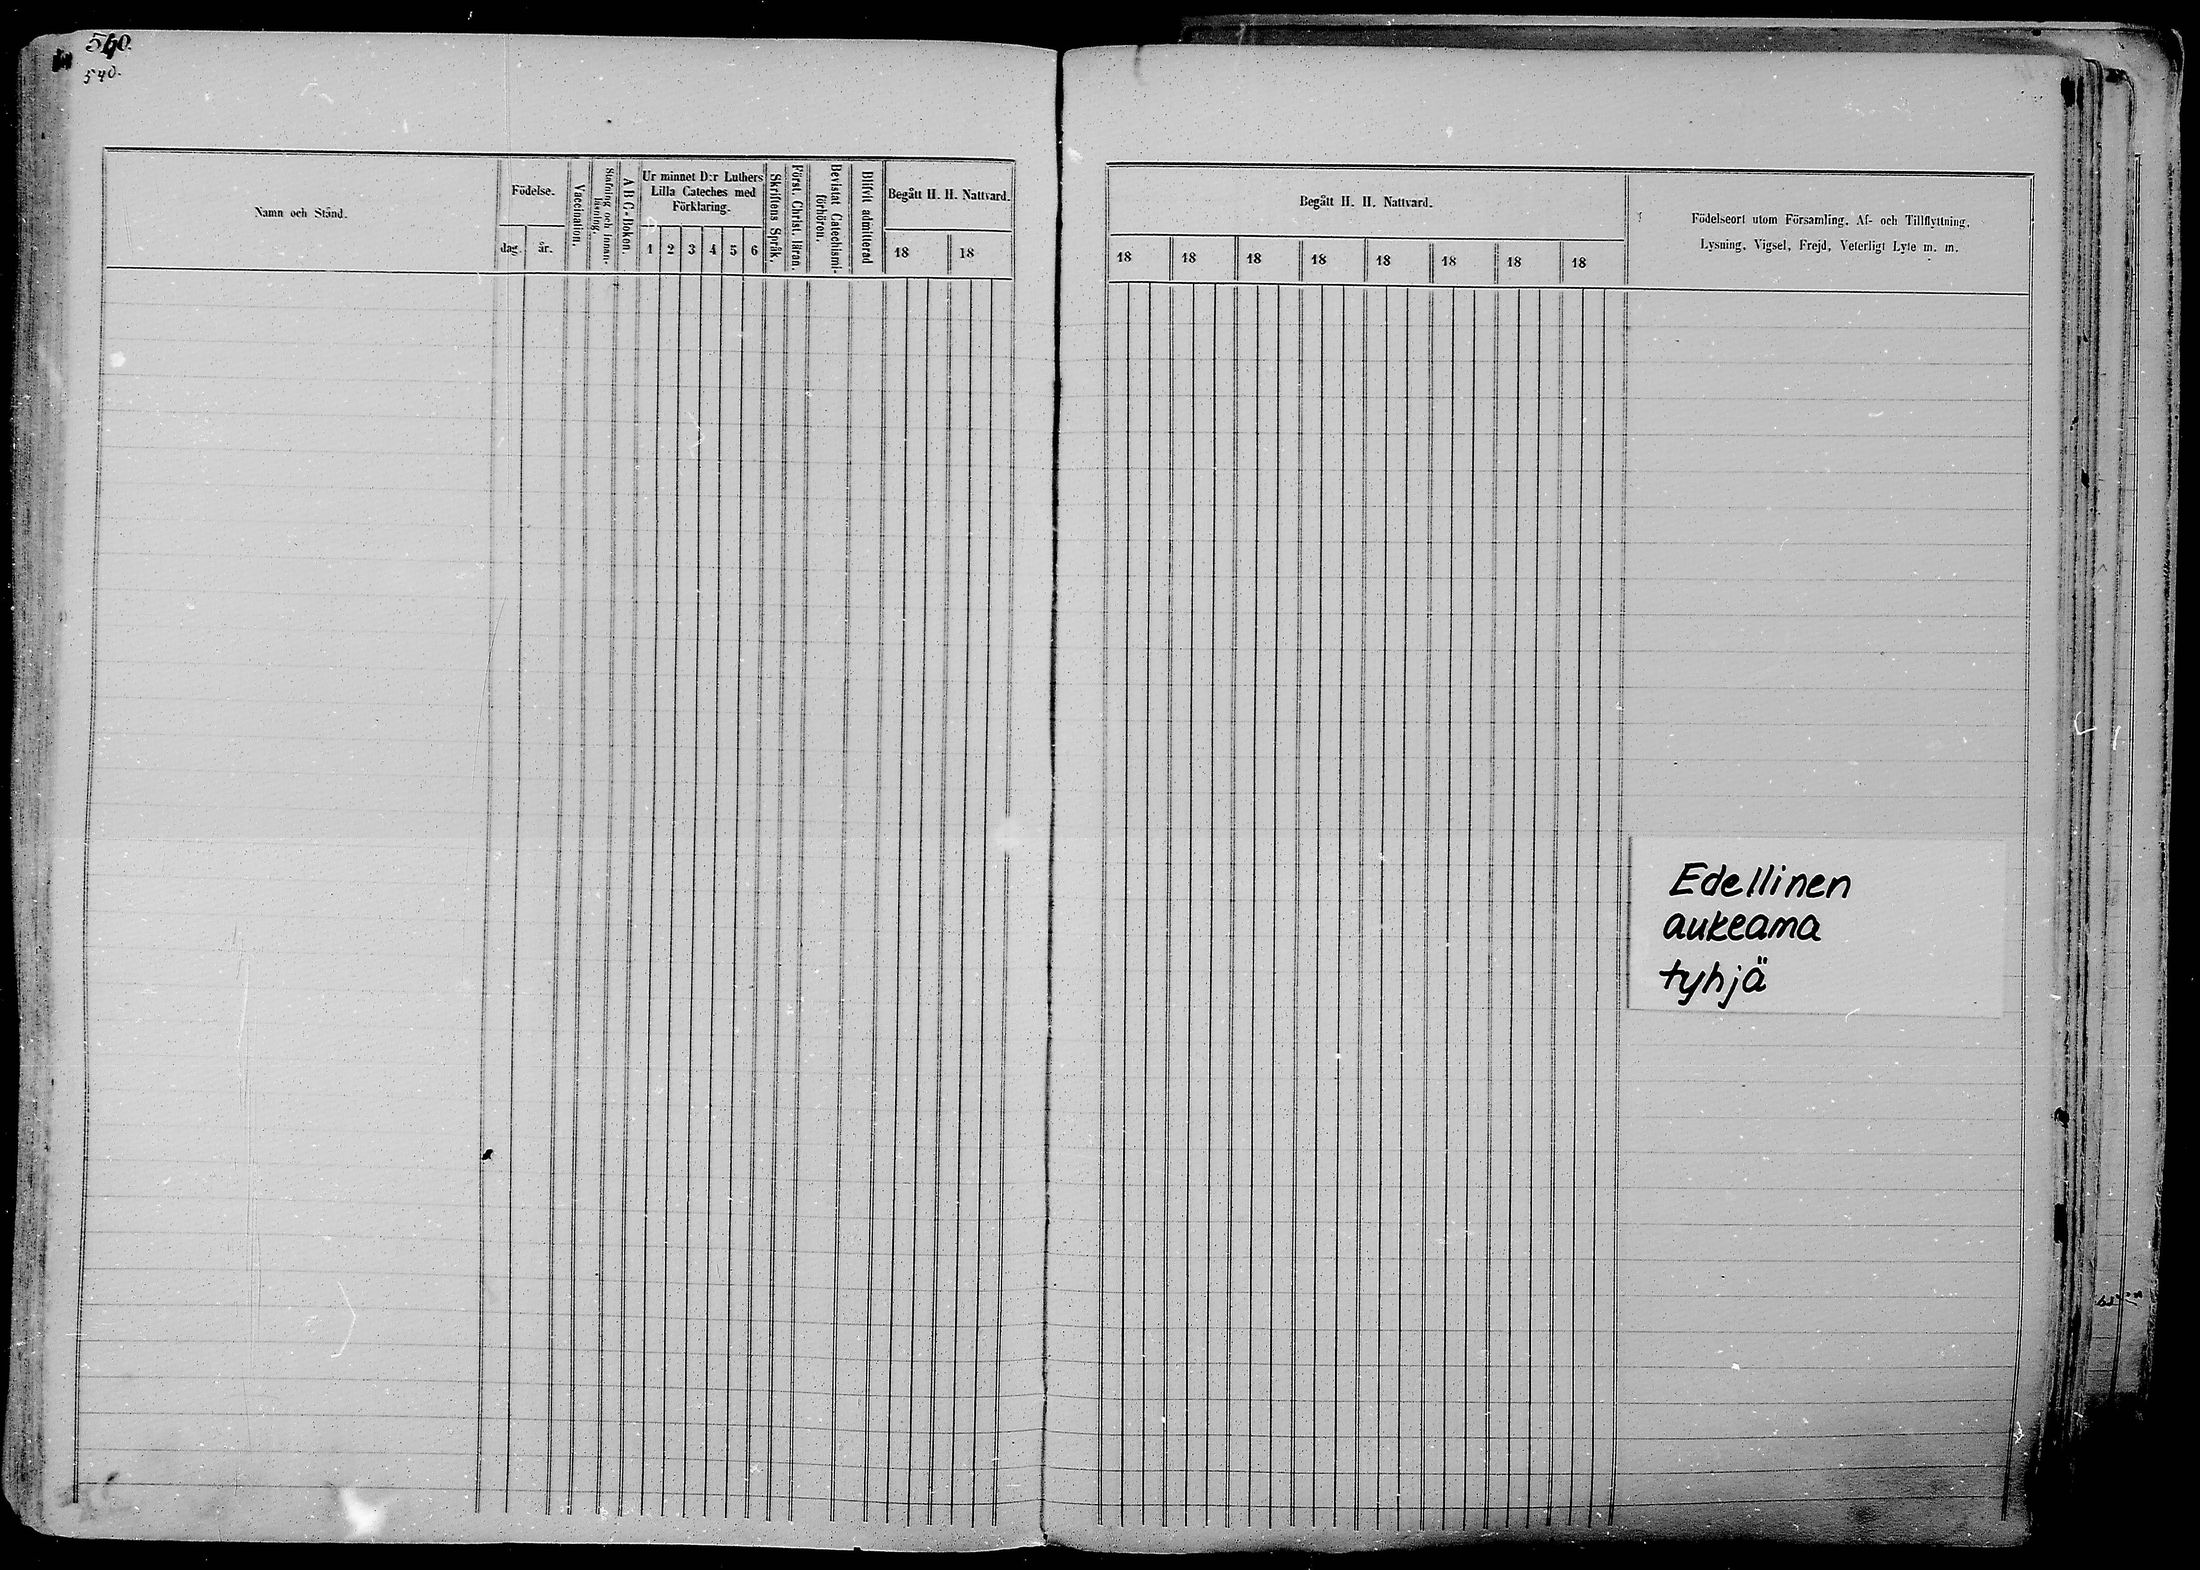 540.
540.
Namn och Stånd.
Födelse.
dag.
år.
Vaccination.
Stafning och Innan-
läsning.
A B C-Boken.
Ur minnet D:r Luthers
Lilla Cateches med
Förklaring.
1 2 3 4 5 6
Skriftens Språk.
Först. Christ. läran.
Bevistat Catechismi-
förhören.
Blifvit admitterad
Begått H. H. Nattvard.
18 18
Begått H. H. Nattvard.
18 18 18 18 18 18 18 18
Födelseort utom Församling, Af- och Tillflyttning,
Lysning, Vigsel, Frejd, Veterligt Lyte m. m.
Edellinen
aukeama
tyhjä